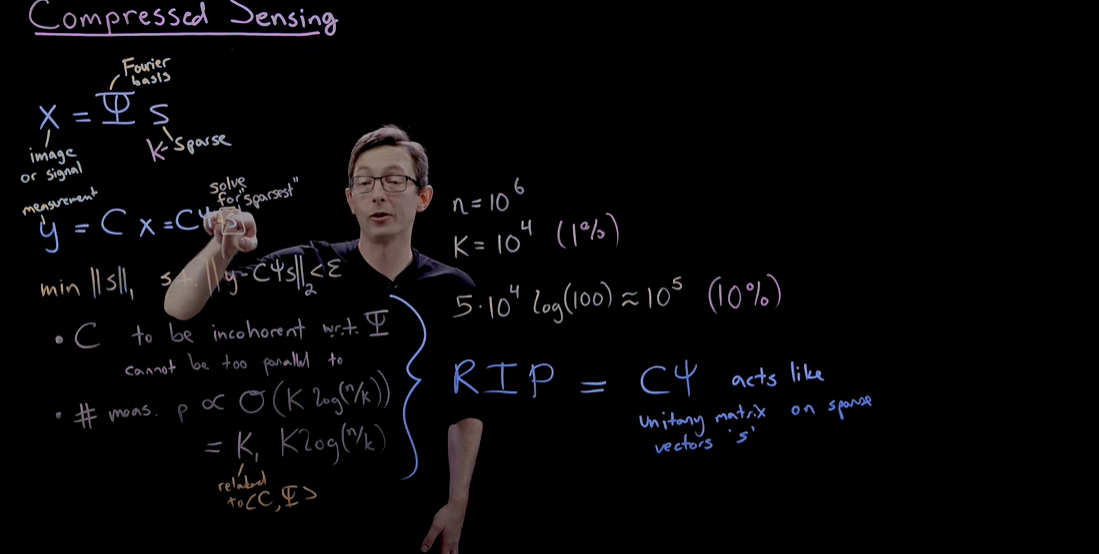 Compressed Sensing
Fourier
basis
X = Ψ s
image
or signal
K-sparse
measurement
solve
for "sparsest"
y = C x = CΨ s
min ||s||₁ s.t. ||y-CΨs||₂ < ε
• C to be incohorent w.r.t. Ψ
cannot be too parallel to
• # meas. p ∝ O(K log(n/k))
= K₁ K log(n/k)
related
to <C, Ψ>
n = 10⁶
K = 10⁴ (1%)
5·10⁴ log(100) ≈ 10⁵ (10%)
RIP = CΨ acts like
unitary matrix on sparse
vectors 's'